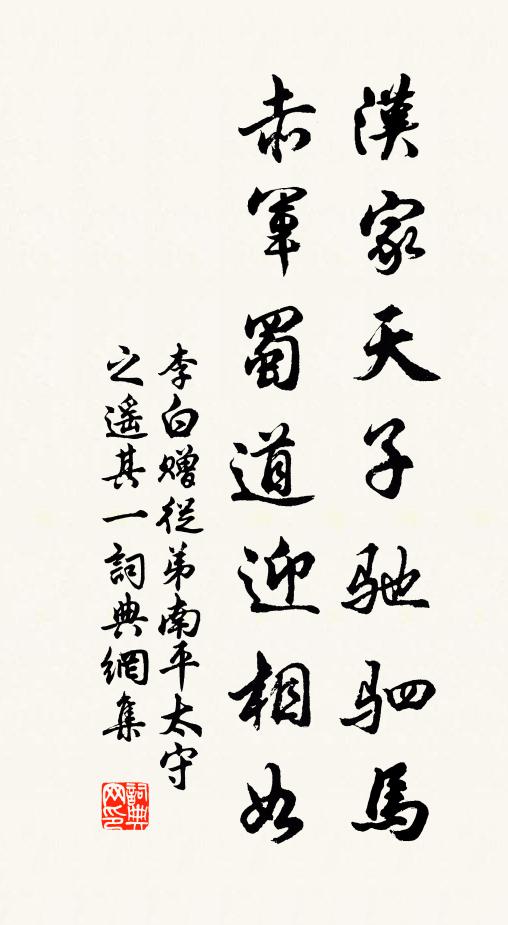 漢家天子驰驷馬
赤軍蜀道迎相如
李白贈從弟南平太守
之遥其一詞典網集
詞典
网印